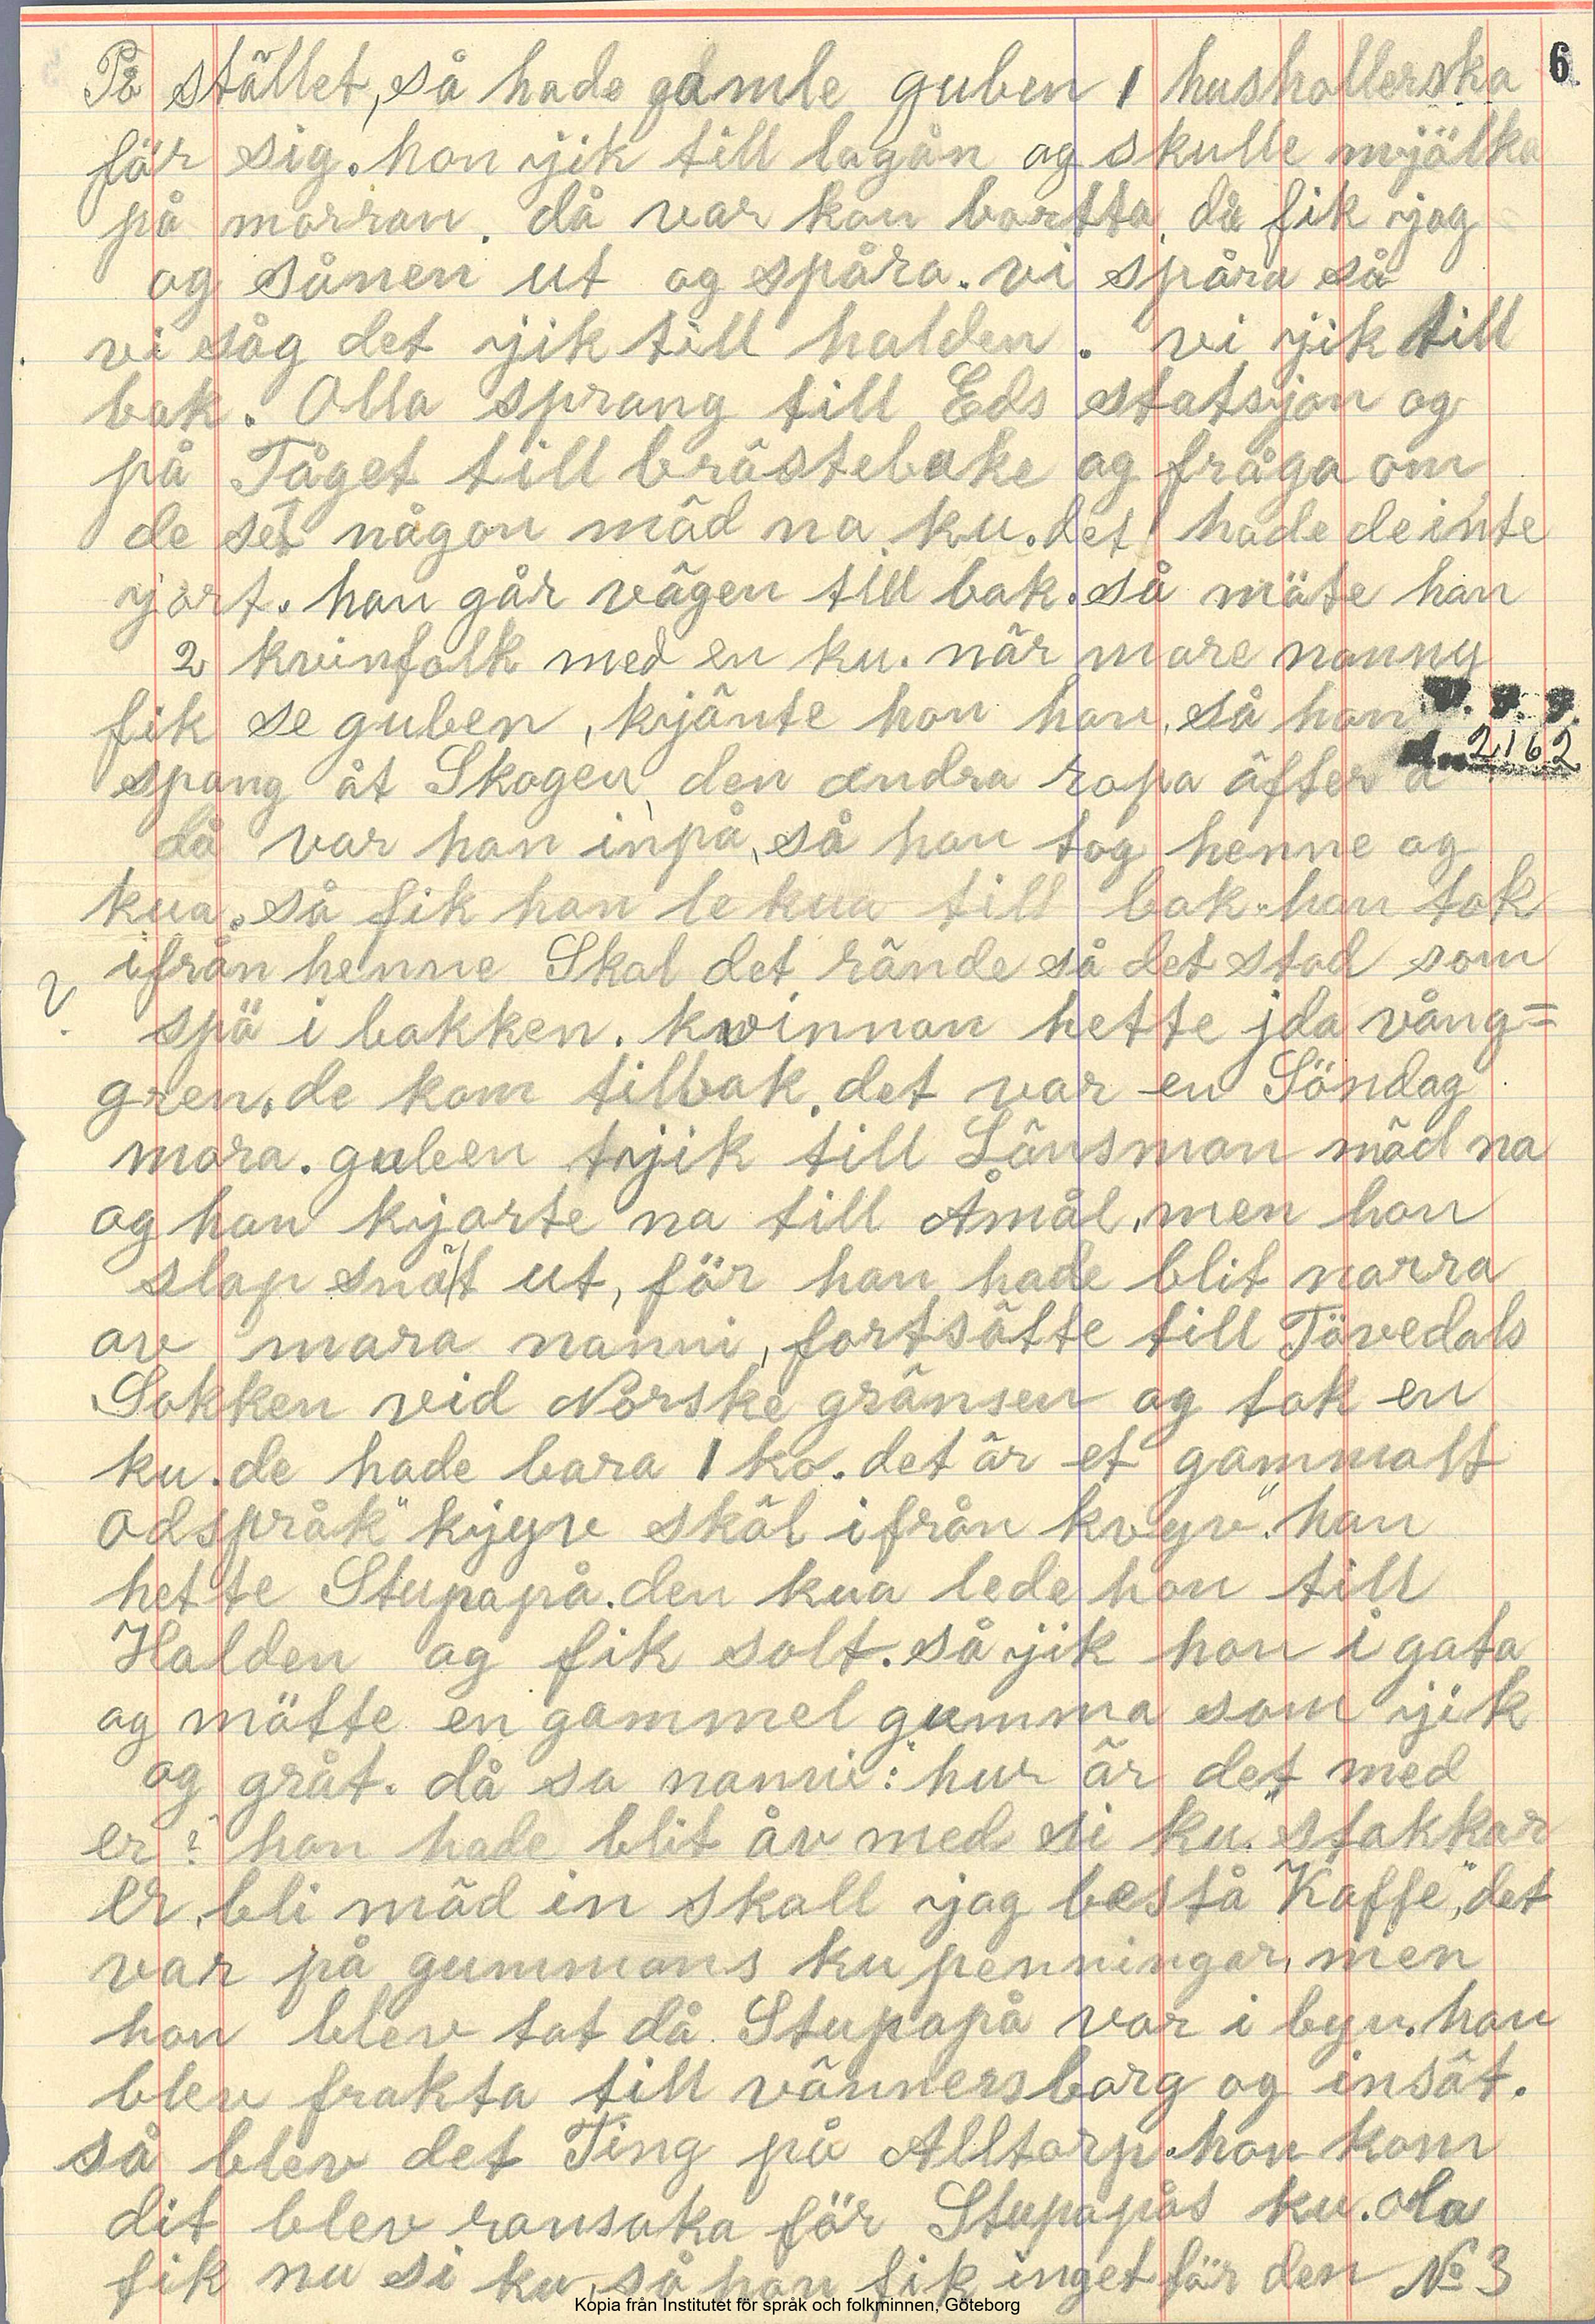 6
På stället, så hade gamle guben 1 hushollerska
får sig. hon jik till lagån og skulle mjölka
på morran. då var kon bortta, då fik jag
og sånen ut og spåra. vi spåra så
vi såg det jik till halden. vi jik till
bak. Olla sprang till Eds statsjon og
på Tåget till bråstebake og fråga om
de set någon måd na ku. det hade de inte
jort. han går vågen till bak. så möte han
2 kvinfolk med en ku. når more nanny
fik se guben, kjånte hon han, så hon
spang åt Skogen, den andra ropa åfter a
V. F. F.
dn 2162
då var han inpå, så han tog henne og
kua. så fik han le kua till bak. han tok
ifrån henne Skal det rånde så det stod som
?
spö i bakken. kvinnan hette jda vång=
gren. de kom tilbak. det var en Söndag
mora. guben jik till Lånsman måd na
og han kjorte na till Åmål, men hon
slap snåt ut, för han hade blit narra
av mara nanni, fortsåtte till Tövedals
Sokken vid Norske grånsen og tok en
ku. de hade bara 1 ko. det år et gammalt
odspråk "kjyv skål ifrån kvyv". han
hette Stupapå. den kua lede hon till
Halden og fik solt. så jik hon i gata
og mötte en gammel gumma som jik
og gråt. då sa nanni: hur år det med
er? hon hade blit åv med si ku. "stakkar
er, bli måd in skall jag bestå Kaffe", det
var på gummans ku penningar, men
hon blev tat då Stupapå var i byn. hon
blev frakta till vånnersborg og insåt.
så blev det Ting på Alltorp. hon kom
dit blev ransaka för Stupapås ku. ola
fik nu si ku, så hon fik inget får den № 3
Kopia från Institutet för språk och folkminnen, Göteborg